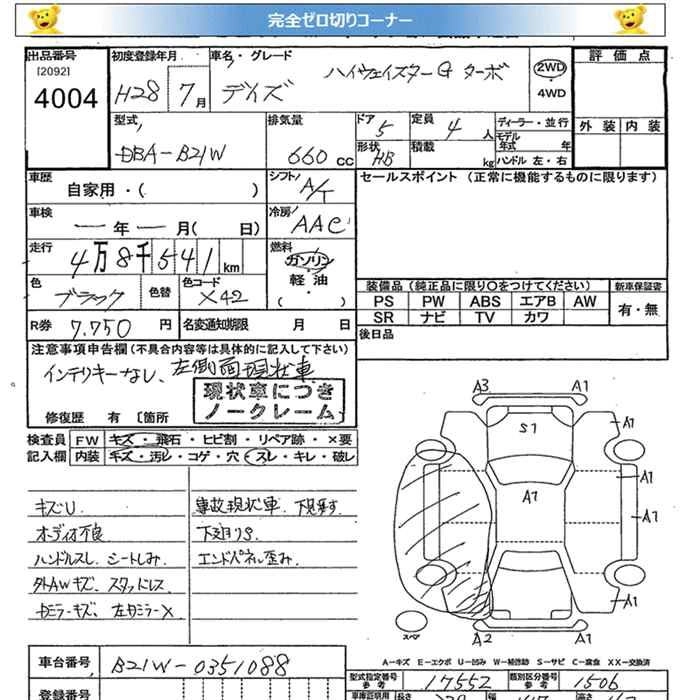 完全ゼロ切りコーナー
出品番号 初度登録年月 車名・グレード 評価点
[2092]
4004 H28 7月 デイズ ハイウェイスターG ターボ 2WD・4WD
型式 排気量 ドア 定員 ディーラー・並行 外装 内装
DBA-B21W 660cc 5 4人 モデル年式 年
形状 HB 積載 kg ハンドル 左・右
車歴 自家用・( ) シフト A/T セールスポイント (正常に機能するものに限ります)
車検 ー年ー月( 日) 冷房 AAC
走行 4万8千541km 燃料 ガソリン・軽油・( )
色 ブラック 色替 色コード X42 装備品 (純正品に限り○をつけてください) 新車保証書
PS PW ABS エアB AW 有・無
SR ナビ TV カワ
R券 7,750円 名変通知期限 月 日 後日品
注意事項申告欄(不具合内容等は具体的に記入して下さい)
インテリキーなし、左側面現状車
現状車につき
ノークレーム
修復歴 有 〔箇所
検査員 FW キズ・飛石・ヒビ割・リペア跡・×要
記入欄 内装 キズ・汚レ・コゲ・穴・スレ・キレ・破レ
キズU 事故現状車、下見要す
オーディオ不良 下廻りS
ハンドルスレ シートしみ エンドパネル歪み
外AWキズ、スタッドレス
ミラーキズ、左ミラーX
A3 A1
A1
S1
A1
A1
A1
A1
A2 A1
スペア
A-キズ E-エクボ U-凹み W-補修跡 S-サビ C-腐食 XX-交換済
車台番号 B21W-0351088
型式指定番号 参考 17552 類別区分番号 参考 1506
登録番号 車庫証明用 長さ 幅 高さ